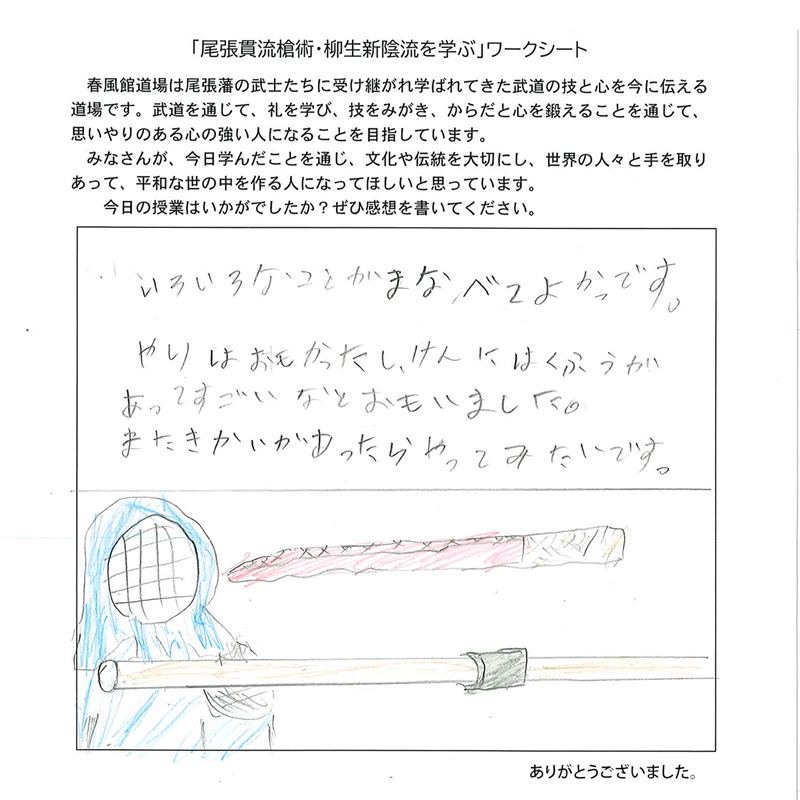 「尾張貫流槍術・柳生新陰流を学ぶ」ワークシート
春風館道場は尾張藩の武士たちに受け継がれ学ばれてきた武道の技と心を今に伝える
道場です。武道を通じて、礼を学び、技をみがき、からだと心を鍛えることを通じて、
思いやりのある心の強い人になることを目指しています。
みなさんが、今日学んだことを通じ、文化や伝統を大切にし、世界の人々と手を取り
あって、平和な世の中を作る人になってほしいと思っています。
今日の授業はいかがでしたか？ぜひ感想を書いてください。
いろいろなことがまなべてよかっです。
やりはおもかったし、けんにはくふうが
あってすごいなとおもいました。
またきかいがあったらやってみたいです。
ありがとうございました。